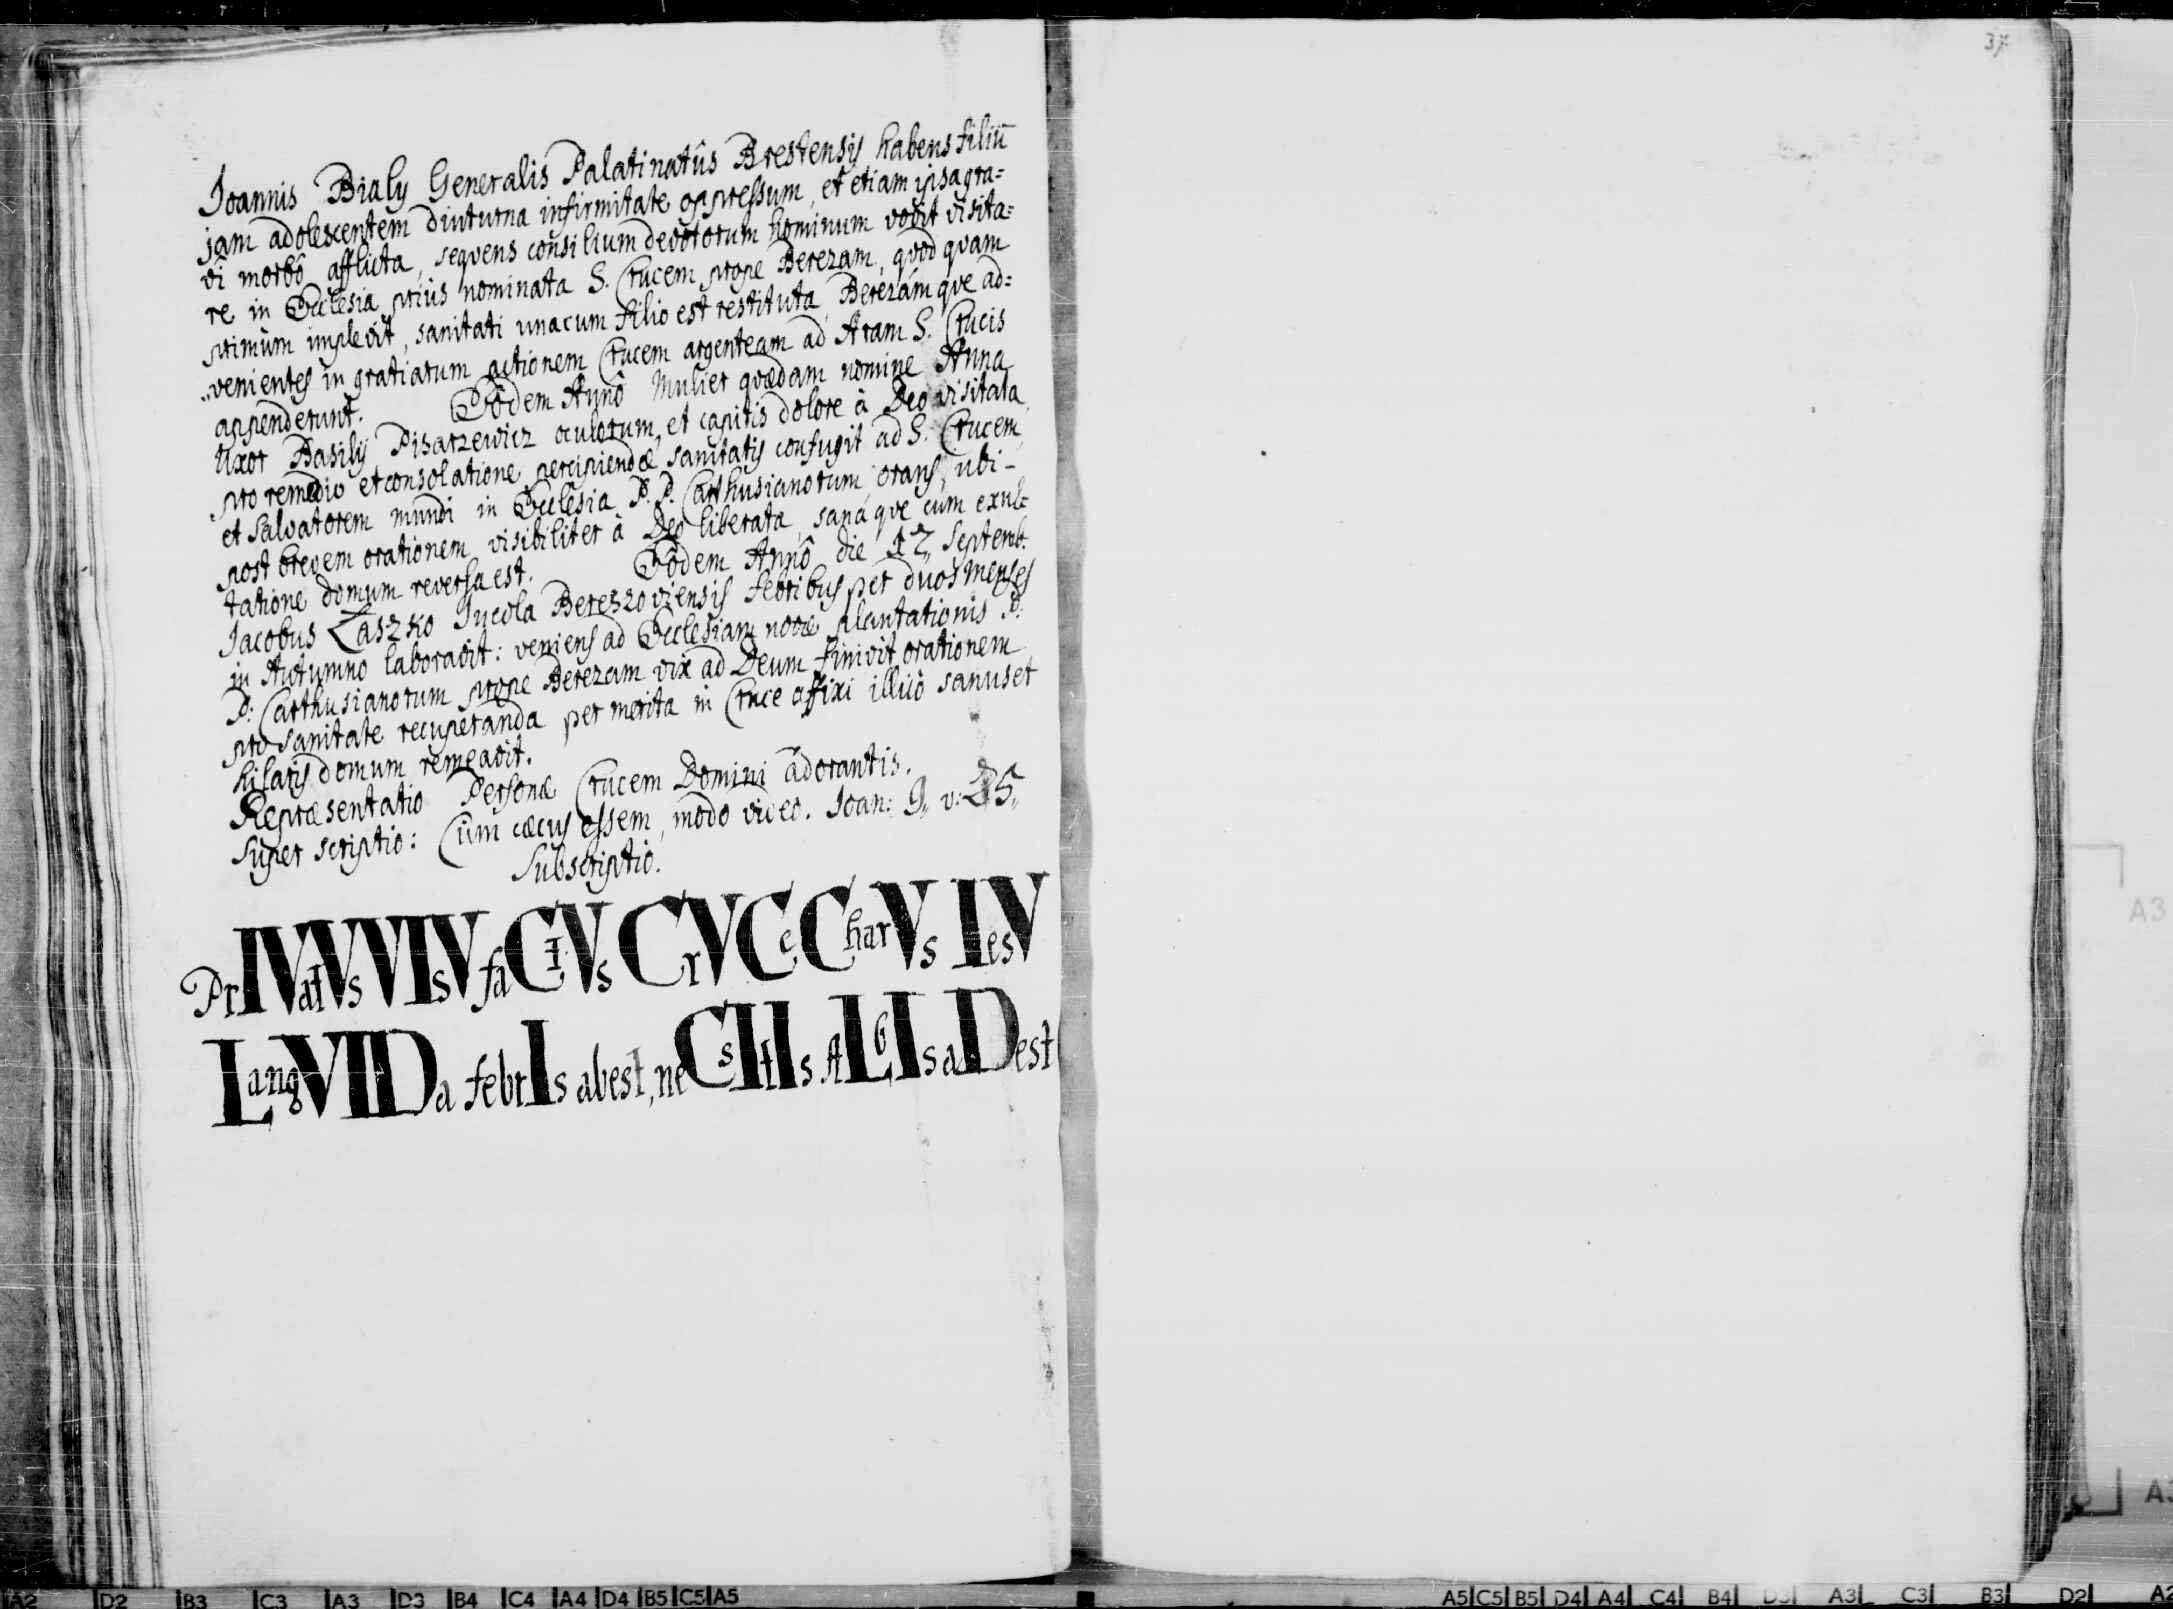 37
Joannis Bialy Generalis Palatinatûs Brestensis habens filiū
jam adolescentem diuturna infirmitate oppressum, et etiam ipsa gra=
vi morbô afflicta, sequens consilium devotorum hominum vovit visita=
re in Ecclesia priùs nominata S. Crucem prope Berezam, quod quam
primùm implevit, sanitati unacum filio est restituta, Berezámque ad=
venientes in gratiarum actionem Crucem argenteam ad Aram S. Crucis
appenderunt. Eôdem Annô Mulier quædam nomine Anna
Uxor Basilij Pisarzewicz oculorum, et capitis dolore à Deo visitata
pro remedio et consolatione percipiendæ sanitatis confugit ad S. Crucem,
et Salvatorem mundi in Ecclesia P. P. Carthusianorum orans, ubi
post brevem orationem visibiliter à Deo liberata, sanáque cum exul=
tatione domum reversa est. Eôdem Annô die 12 Septemb.
Jacobus Łaszko Incola Berezoviensis febribus per duos menses
in Autumno laboravit: veniens ad Ecclesiam novæ plantationis P:
P: Carthusianorum prope Berezam vix ad Deum finivit orationem
pro sanitate recuperanda per merita in Cruce affixi illicò sanus et
hilaris domum remeavit.
Repræsentatio Personæ Crucem Domini adorantis.
Super scriptio: Cùm cæcus essem, modo video. Joan: 9,, v: 25,,
Subscriptio.
PrIVatVs VIsV faCtVs CrVCe CharVs IesV
LangVIIDa febrIs abest, neC sItIs ALGIs aDest
A2 D2 B3 C3 A3 D3 B4 C4 A4 D4 B5 C5 A5
A5 C5 B5 D4 A4 C4 B4 D3 A3 C3 B3 D2 A2
A3